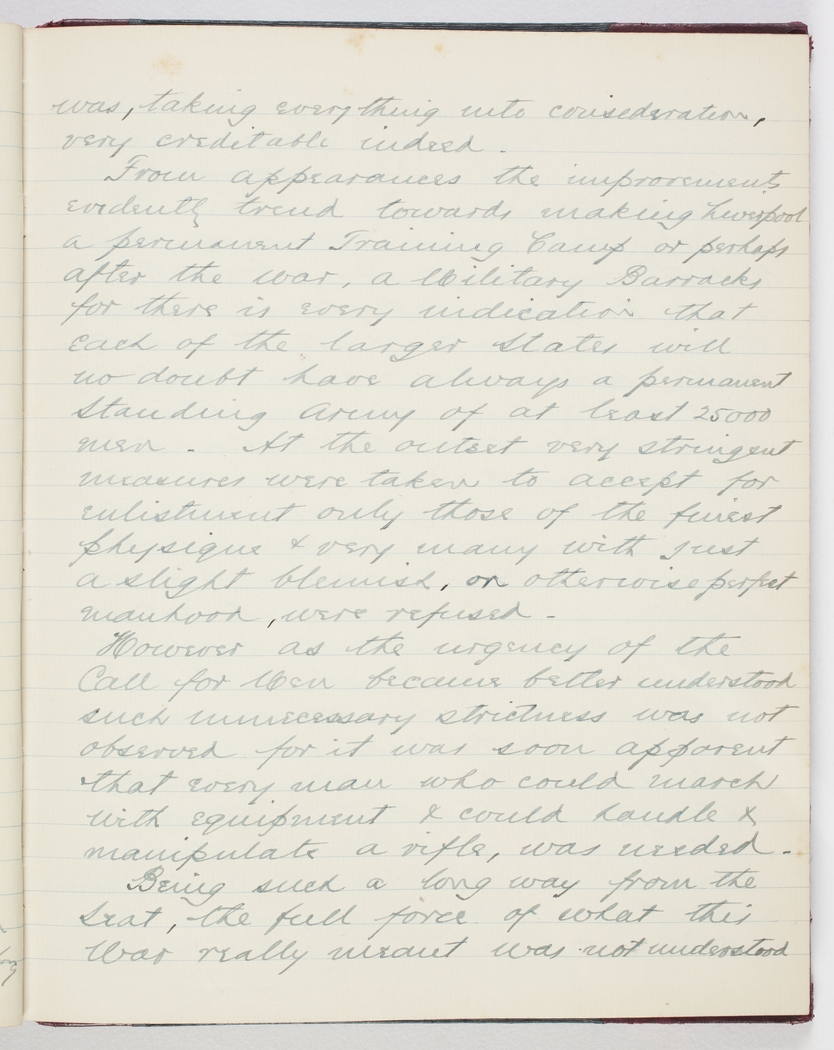 was, taking everything into consederation,
very creditable indeed.
From appearances the improvements
evidently trend towards making Liverpool
a permanent Training Camp or perhaps
after the war, a Military Barracks
for there is every indication that
each of the larger States will
no doubt have always a permanent
Standing Army of at least 25000
men. At the outset very stringent
measures were taken to accept for
enlistment only those of the finest
physique & very many with just
a slight blemish, or otherwise perfect
manhood, were refused.
However as the urgency of the
Call for Men became better understood
such unnecessary strictness was not
observed for it was soon apparent
that every man who could march
with equipment & could handle &
manipulate a rifle, was needed.
Being such a long way from the
Seat, the full force of what this
War really meant was not understood